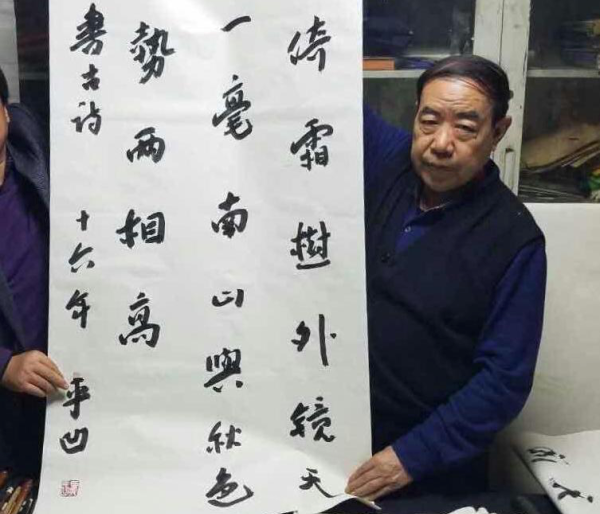 倚霜樹外镜天
一毫南山與秋色
勢兩相高
書古诗 十六年 平凹